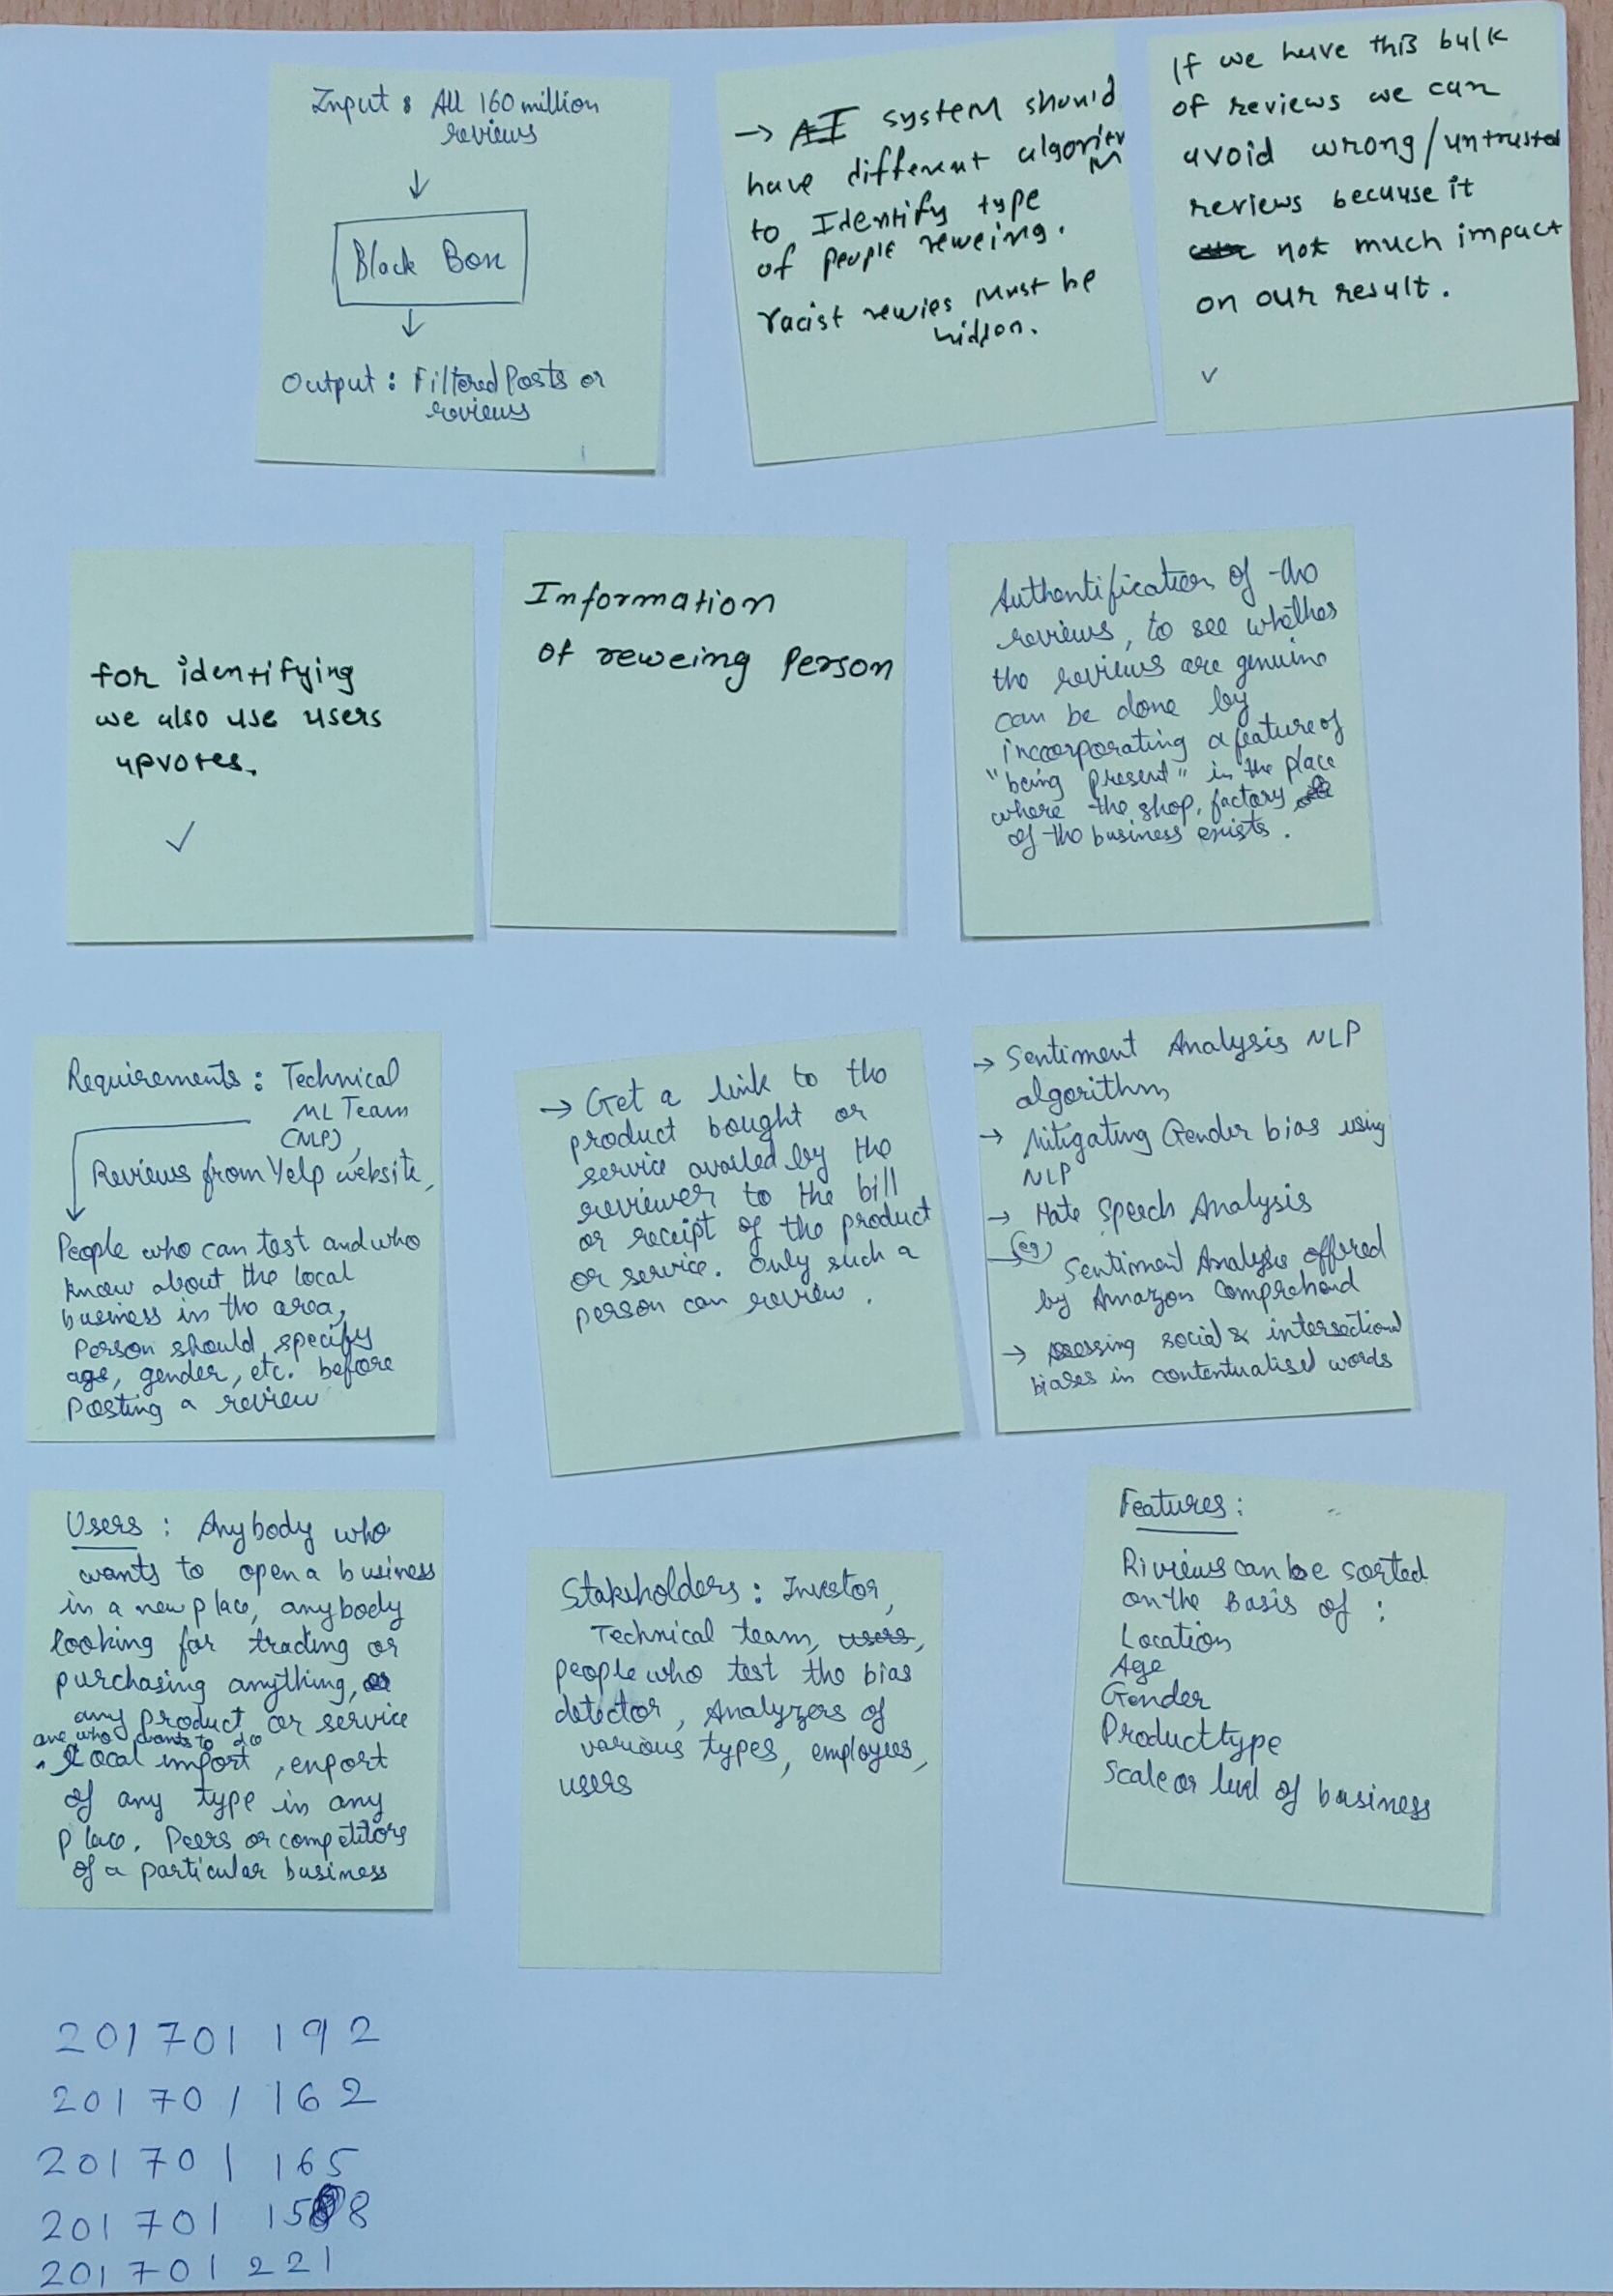 Input : All 160 million
reviews
↓
Black Box
↓
Output : Filtered Posts or
reviews
→ AI system should
have different algorithm
to Identify type
of people reweing.
racist rewies Must be
hidden.
If we have this bulk
of reviews we can
avoid wrong/untrusted
reviews because it
not much impact
on our result.
✓
for identifying
we also use users
upvotes.
✓
Information
of reweing Person
Authentification of the
reviews, to see whether
the reviews are genuine
can be done by
incorporating a feature of
"being present" in the place
where the shop, factory
of the business exists.
Requirements : Technical
ML Team
(NLP),
Reviews from Yelp website,
People who can test and who
know about the local
business in the area,
Person should specify
age, gender, etc. before
Posting a review
→ Get a link to the
product bought or
service availed by the
reviewer to the bill
or receipt of the product
or service. Only such a
person can review.
→ Sentiment Analysis NLP
algorithm
→ Mitigating Gender bias using
NLP
→ Hate Speech Analysis
(eg)
Sentiment Analysis offered
by Amazon Comprehend
→ assessing social & intersectional
biases in contextualised words
Users : Anybody who
wants to open a business
in a new place, anybody
looking for trading or
purchasing anything, or
any product or service
one who wants to do
Local import, export
of any type in any
place. Peers or competitors
of a particular business
Stakeholders : Investor,
Technical team, users,
people who test the bias
detector, Analyzers of
various types, employees,
users
Features :
Riviews can be sorted
on the Basis of :
Location
Age
Gender
Product type
Scale or level of business
201701192
201701162
201701165
201701158
201701221